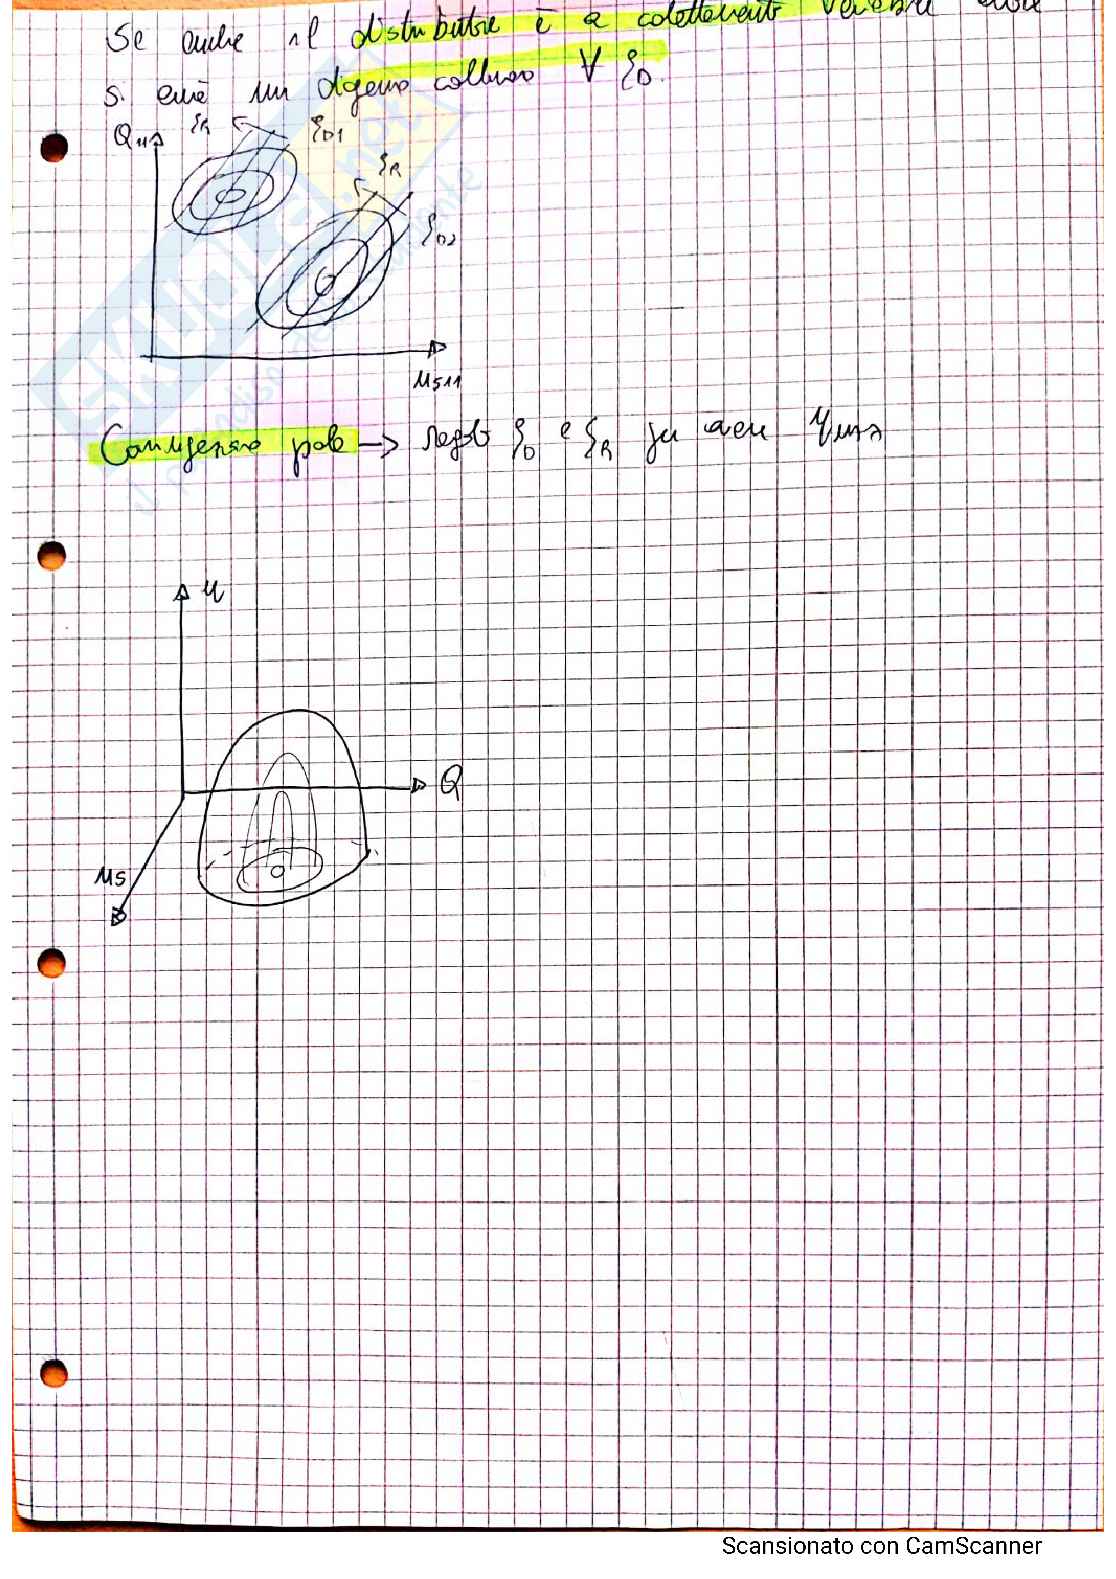 Se anche il distributore è a calettamento variabile allora
si avrà un diagramma collinare ∀ ξD.
Q11 ξR ξD1
ξR
ξD2
n511
Coniugazione pale → regolo ξD e ξR per avere ηmax
η
Q
n5
SKUOLA.net
Scansionato con CamScanner